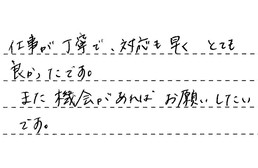 仕事が丁寧で、対応も早く とても
良かったです。
また機会があればお願いしたい
です。